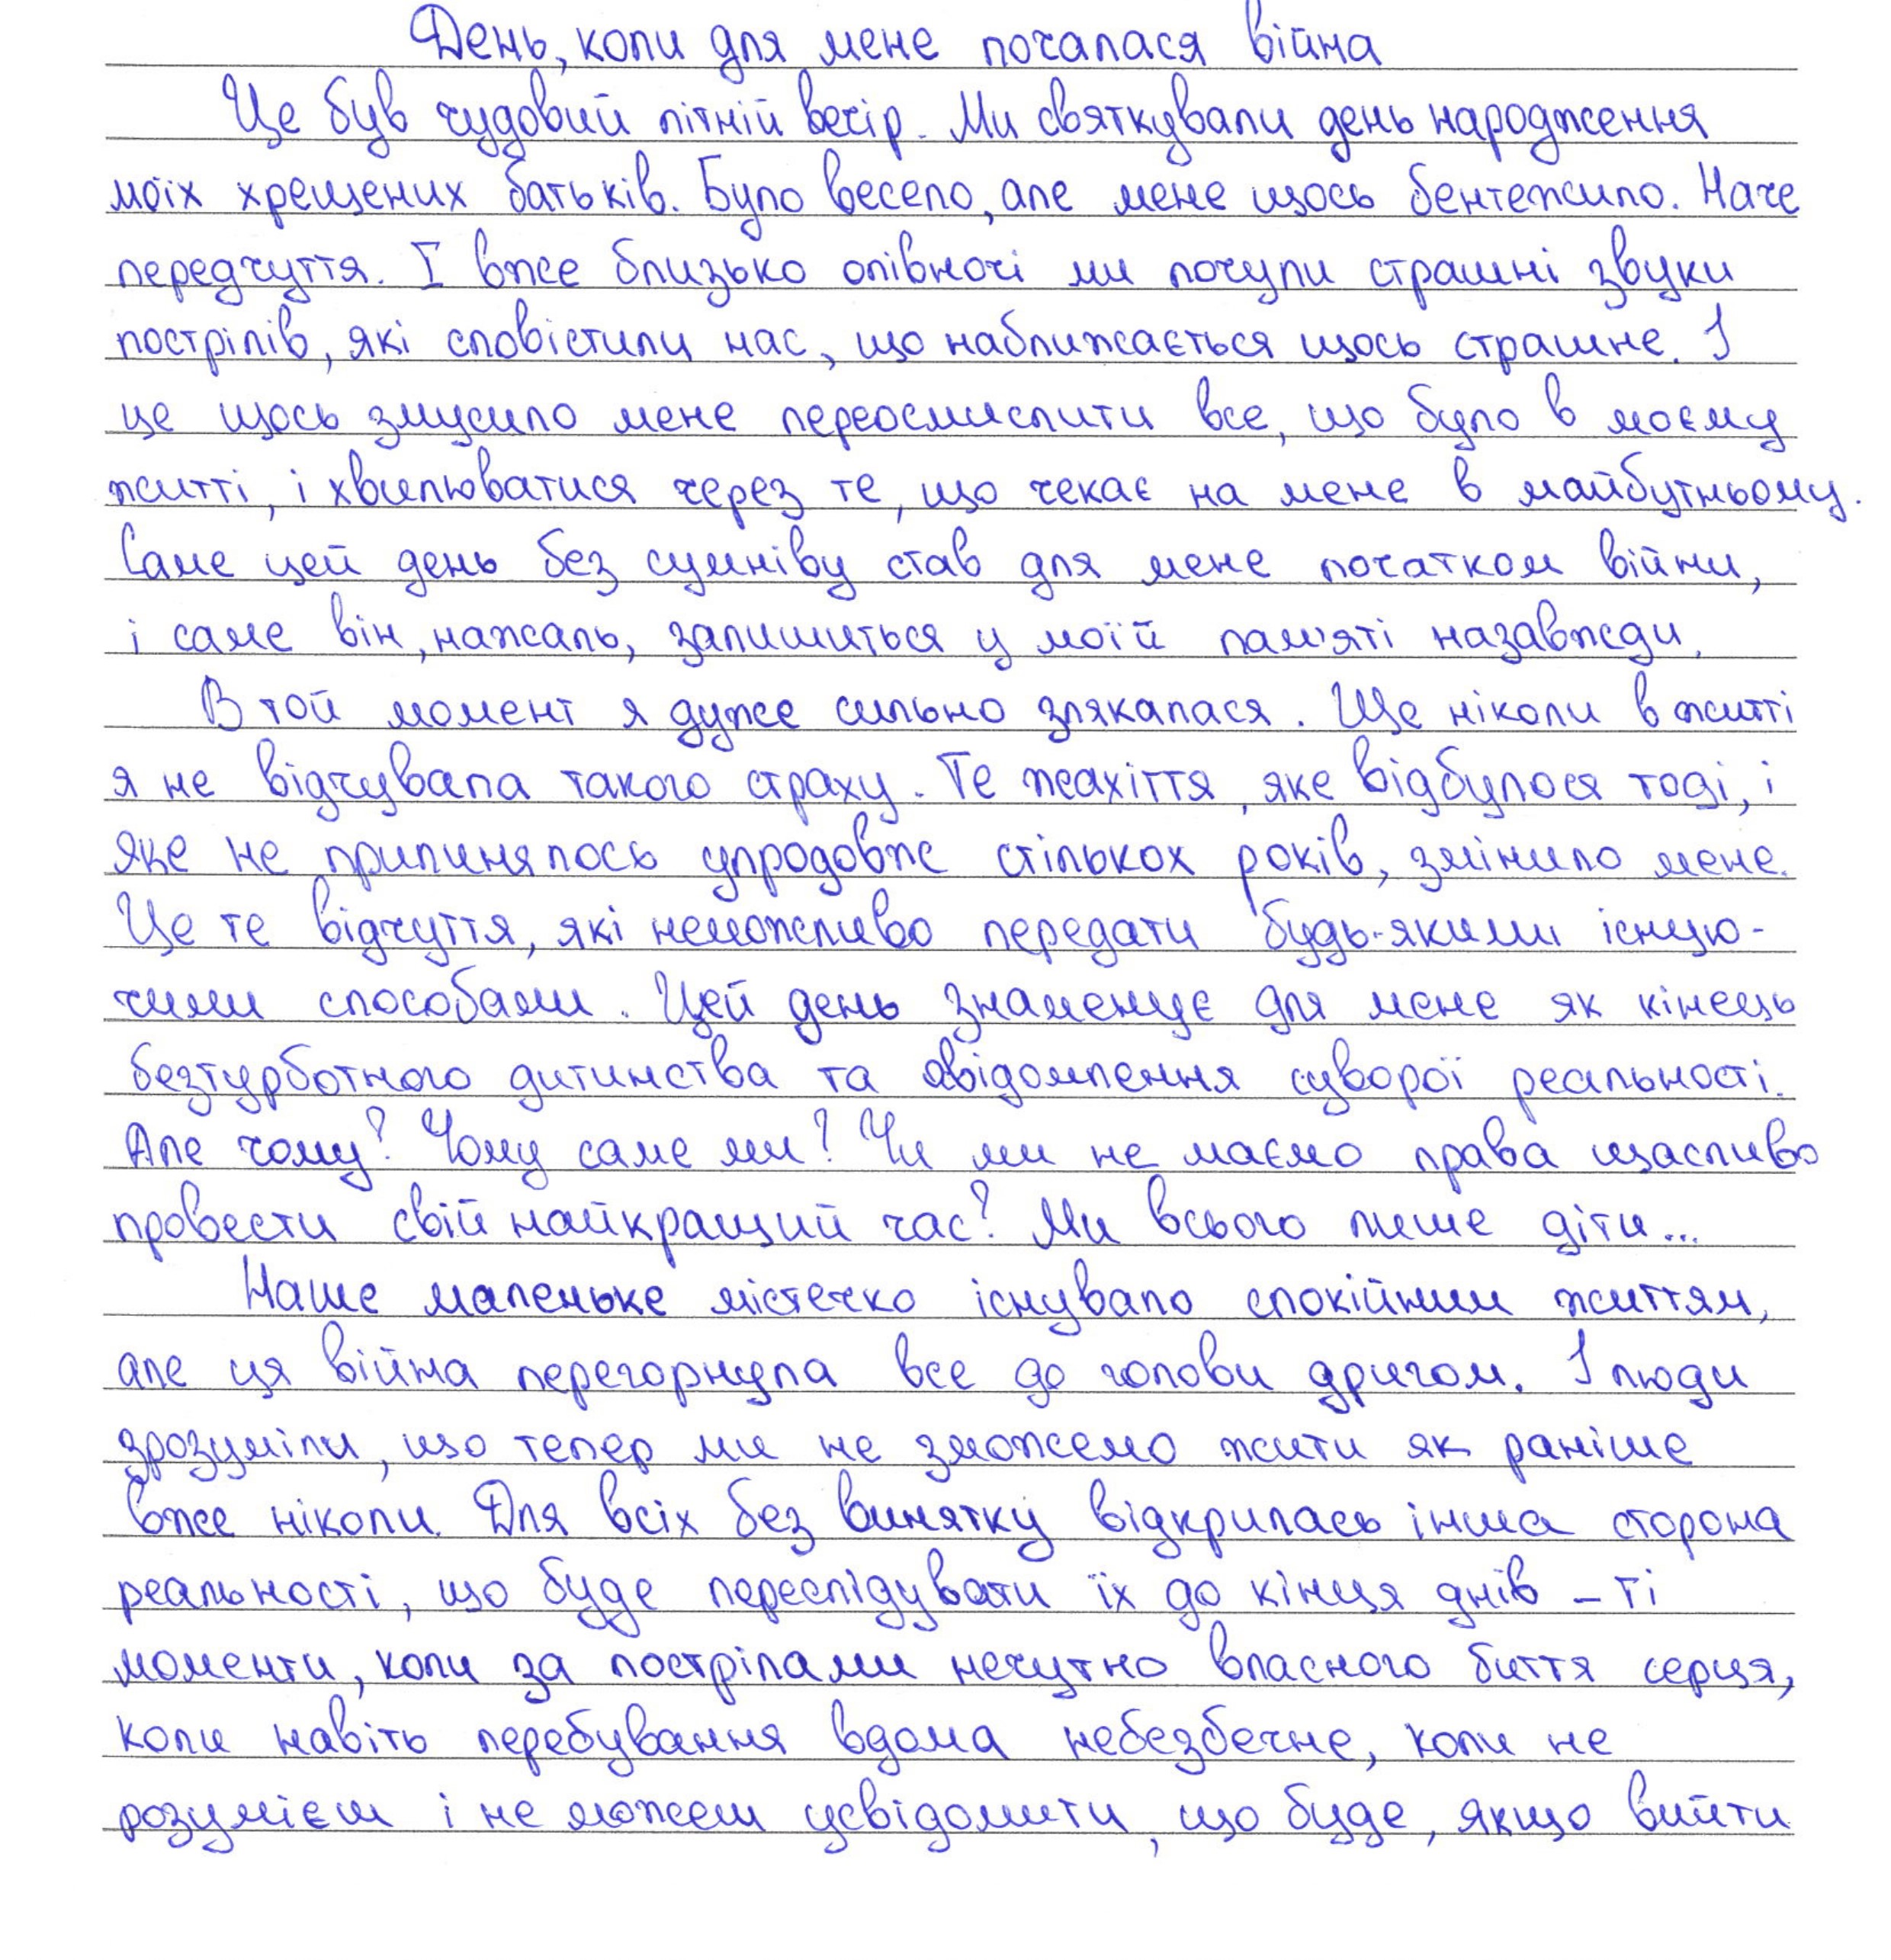 День, коли для мене почалася війна
Це був чудовий літній вечір. Ми святкували день народження
моїх хрещених батьків. Було весело, але мене щось бентежило. Наче
передчуття. І вже близько опівночі ми почули страшні звуки
пострілів, які сповістили нас, що наближається щось страшне. І
це щось змусило мене переосмислити все, що було в моєму
житті, і хвилюватися через те, що чекає на мене в майбутньому.
Саме цей день без сумніву став для мене початком війни,
і саме він, нажаль, залишиться у моїй пам'яті назавжди.
В той момент я дуже сильно злякалася. Ще ніколи в житті
я не відчувала такого страху. Те жахіття, яке відбулося тоді, і
яке не припинялось упродовж стількох років, змінило мене.
Це те відчуття, які неможливо передати будь-якими існую-
чими способами. Цей день знаменує для мене як кінець
безтурботного дитинства та свідомлення суворої реальності.
Але чому? Чому саме ми? Чи ми не маємо права щасливо
провести свій найкращий час? Ми всього лише діти...
Наше маленьке містечко існувало спокійним життям,
але ця війна перегорнула все до голови дригом. І люди
зрозуміли, що тепер ми не зможемо жити як раніше
вже ніколи. Для всіх без винятку відкрилась інша сторона
реальності, що буде переслідувати їх до кінця днів – ті
моменти, коли за пострілами нечутно власного биття серця,
коли навіть перебування вдома небезбечне, коли не
розумієш і не можеш усвідомити, що буде, якщо вийти